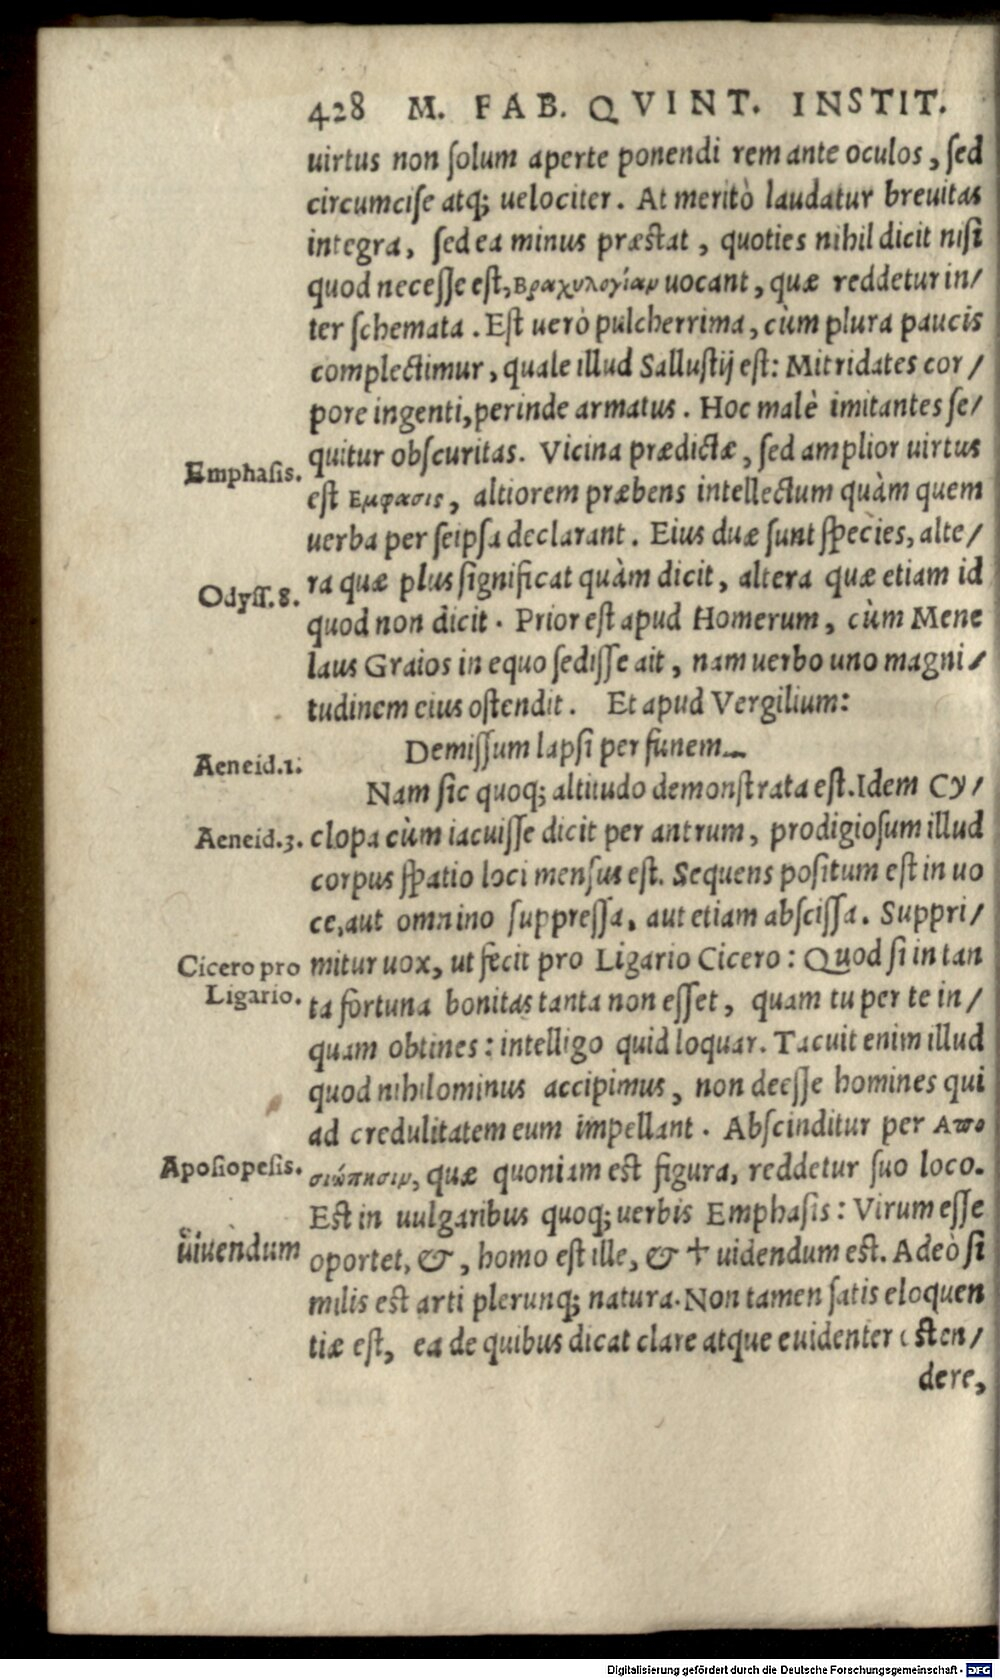 428 M. FAB. QVINT. INSTIT.
uirtus non ſolum aperte ponendi rem ante oculos, ſed
circumciſe atq; uelociter. At meritò laudatur breuitas
integra, ſed ea minus præſtat, quoties nihil dicit niſi
quod neceſſe eſt, Βραχυλογίαν uocant, quæ reddetur in/
ter ſchemata. Eſt uerò pulcherrima, cùm plura paucis
complectimur, quale illud Salluſtij eſt: Mitridates cor/
pore ingenti, perinde armatus. Hoc malè imitantes ſe/
quitur obſcuritas. Vicina prædictæ, ſed amplior uirtus
Emphaſis.
eſt Εμφασις, altiorem præbens intellectum quàm quem
uerba per ſeipſa declarant. Eius duæ ſunt ſpecies, alte/
ra quæ plus ſignificat quàm dicit, altera quæ etiam id
Odyſſ.8.
quod non dicit. Prior eſt apud Homerum, cùm Mene
laus Graios in equo ſediſſe ait, nam uerbo uno magni/
tudinem eius oſtendit. Et apud Vergilium:
Demiſſum lapſi per funem—
Aeneid.1.
Nam ſic quoq; altitudo demonſtrata eſt. Idem Cy/
Aeneid.3.
clopa cùm iacuiſſe dicit per antrum, prodigioſum illud
corpus ſpatio loci menſus eſt. Sequens poſitum eſt in uo
ce, aut omnino ſuppreſſa, aut etiam abſciſſa. Suppri/
Cicero pro
mitur uox, ut fecit pro Ligario Cicero: Quod ſi in tan
Ligario.
ta fortuna bonitas tanta non eſſet, quam tu per te in/
quam obtines: intelligo quid loquar. Tacuit enim illud
quod nihilominus accipimus, non deeſſe homines qui
ad credulitatem eum impellant. Abſcinditur per Απο
Apoſiopeſis.
σιώπησιν, quæ quoniam eſt figura, reddetur ſuo loco.
Eſt in uulgaribus quoq; uerbis Emphaſis: Virum eſſe
uiuendum
oportet, &, homo eſt ille, & † uidendum eſt. Adeò ſi
milis eſt arti plerunq; natura. Non tamen ſatis eloquen
tiæ eſt, ea de quibus dicat clare atque euidenter oſten/
dere,
Digitalisierung gefördert durch die Deutsche Forschungsgemeinschaft - DFG